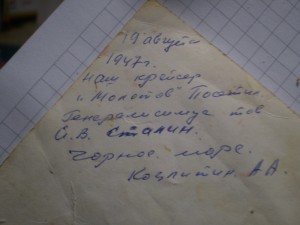 19 августа
1947г.
Наш крейсер
"Молотов" Посетил
Генералисимус тов
И.В. Сталин.
Чорное море.
А.А.